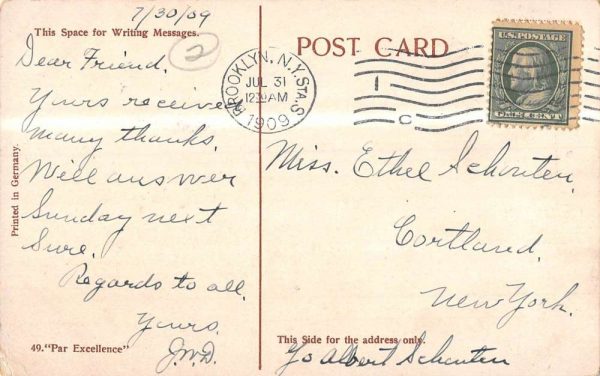 7/30/09
This Space for Writing Messages.
2
Dear Friend,
Yours received
many thanks.
Will answer
Sunday next
Sure.
Regards to all.
Yours.
J.W.D.
Printed in Germany.
49. "Par Excellence"
POST CARD
BROOKLYN, N.Y. STA. S.
JUL 31
12 30 AM
1909
1
C
U.S. POSTAGE
ONE CENT
Miss. Ethel Schouten,
Cortland,
New York.
This Side for the address only.
℅ Albert Schouten